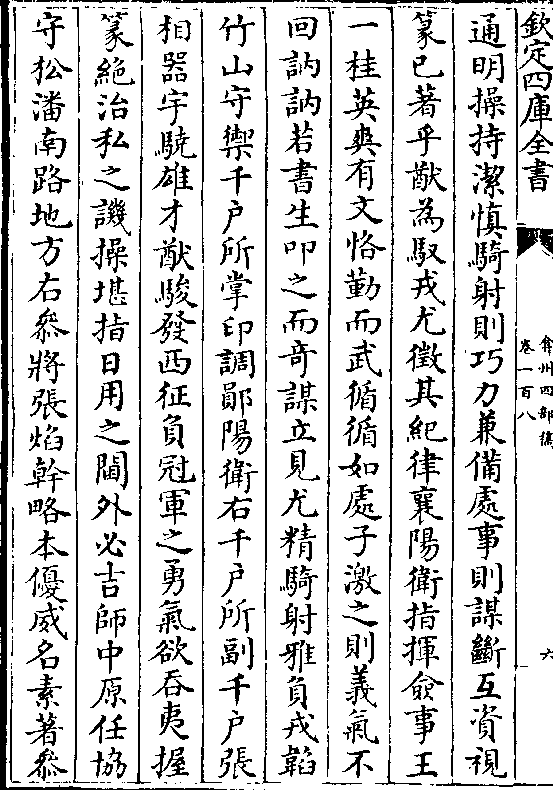 欽定四庫全書
弇州四部稿
卷一百八
六
通明操持潔慎騎射則巧力兼備處事則謀斷互資視
篆已著乎猷為馭戎尤徵其紀律襄陽衛指揮僉事王
一桂英爽有文恪勤而武循循如處子激之則義氣不
回訥訥若書生叩之而竒謀立見尤精騎射雅負戎韜
竹山守禦千户所掌印調鄖陽衛右千户所副千户張
相器宇驍雄才猷駿發西征負冠軍之勇氣欲吞夷握
篆絶治私之譏操堪指日用之閫外必吉師中原任協
守松潘南路地方右叅將張焰幹略本優威名素著叅